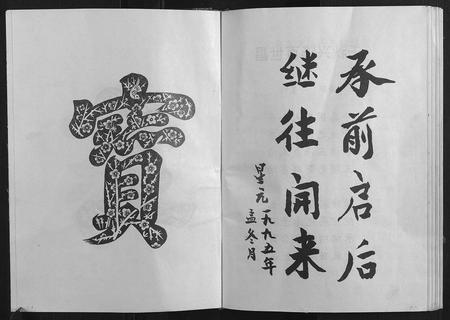 承前启后
继往开来
星元 一九九五年
孟冬月
賓